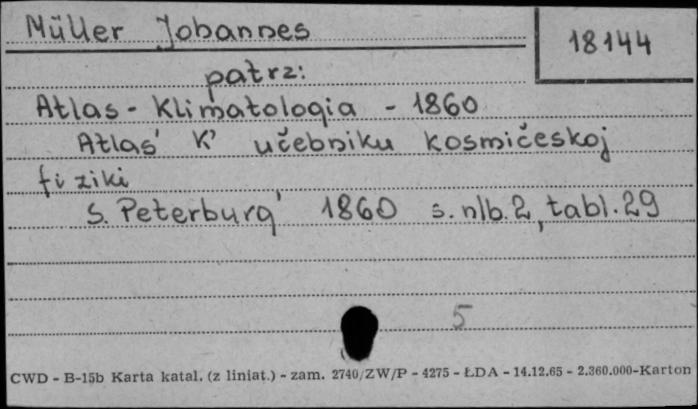 Müller Johannes
18144
patrz:
Atlas - Klimatologia - 1860
Atlas' K' učebniku kosmičeskoj
fiziki
S. Peterburg' 1860 s. nlb. 2, tabl. 29
5
CWD - B-15b Karta katal. (z liniat.) - zam. 2740/ZW/P - 4275 - ŁDA - 14.12.65 - 2.360.000-Karton